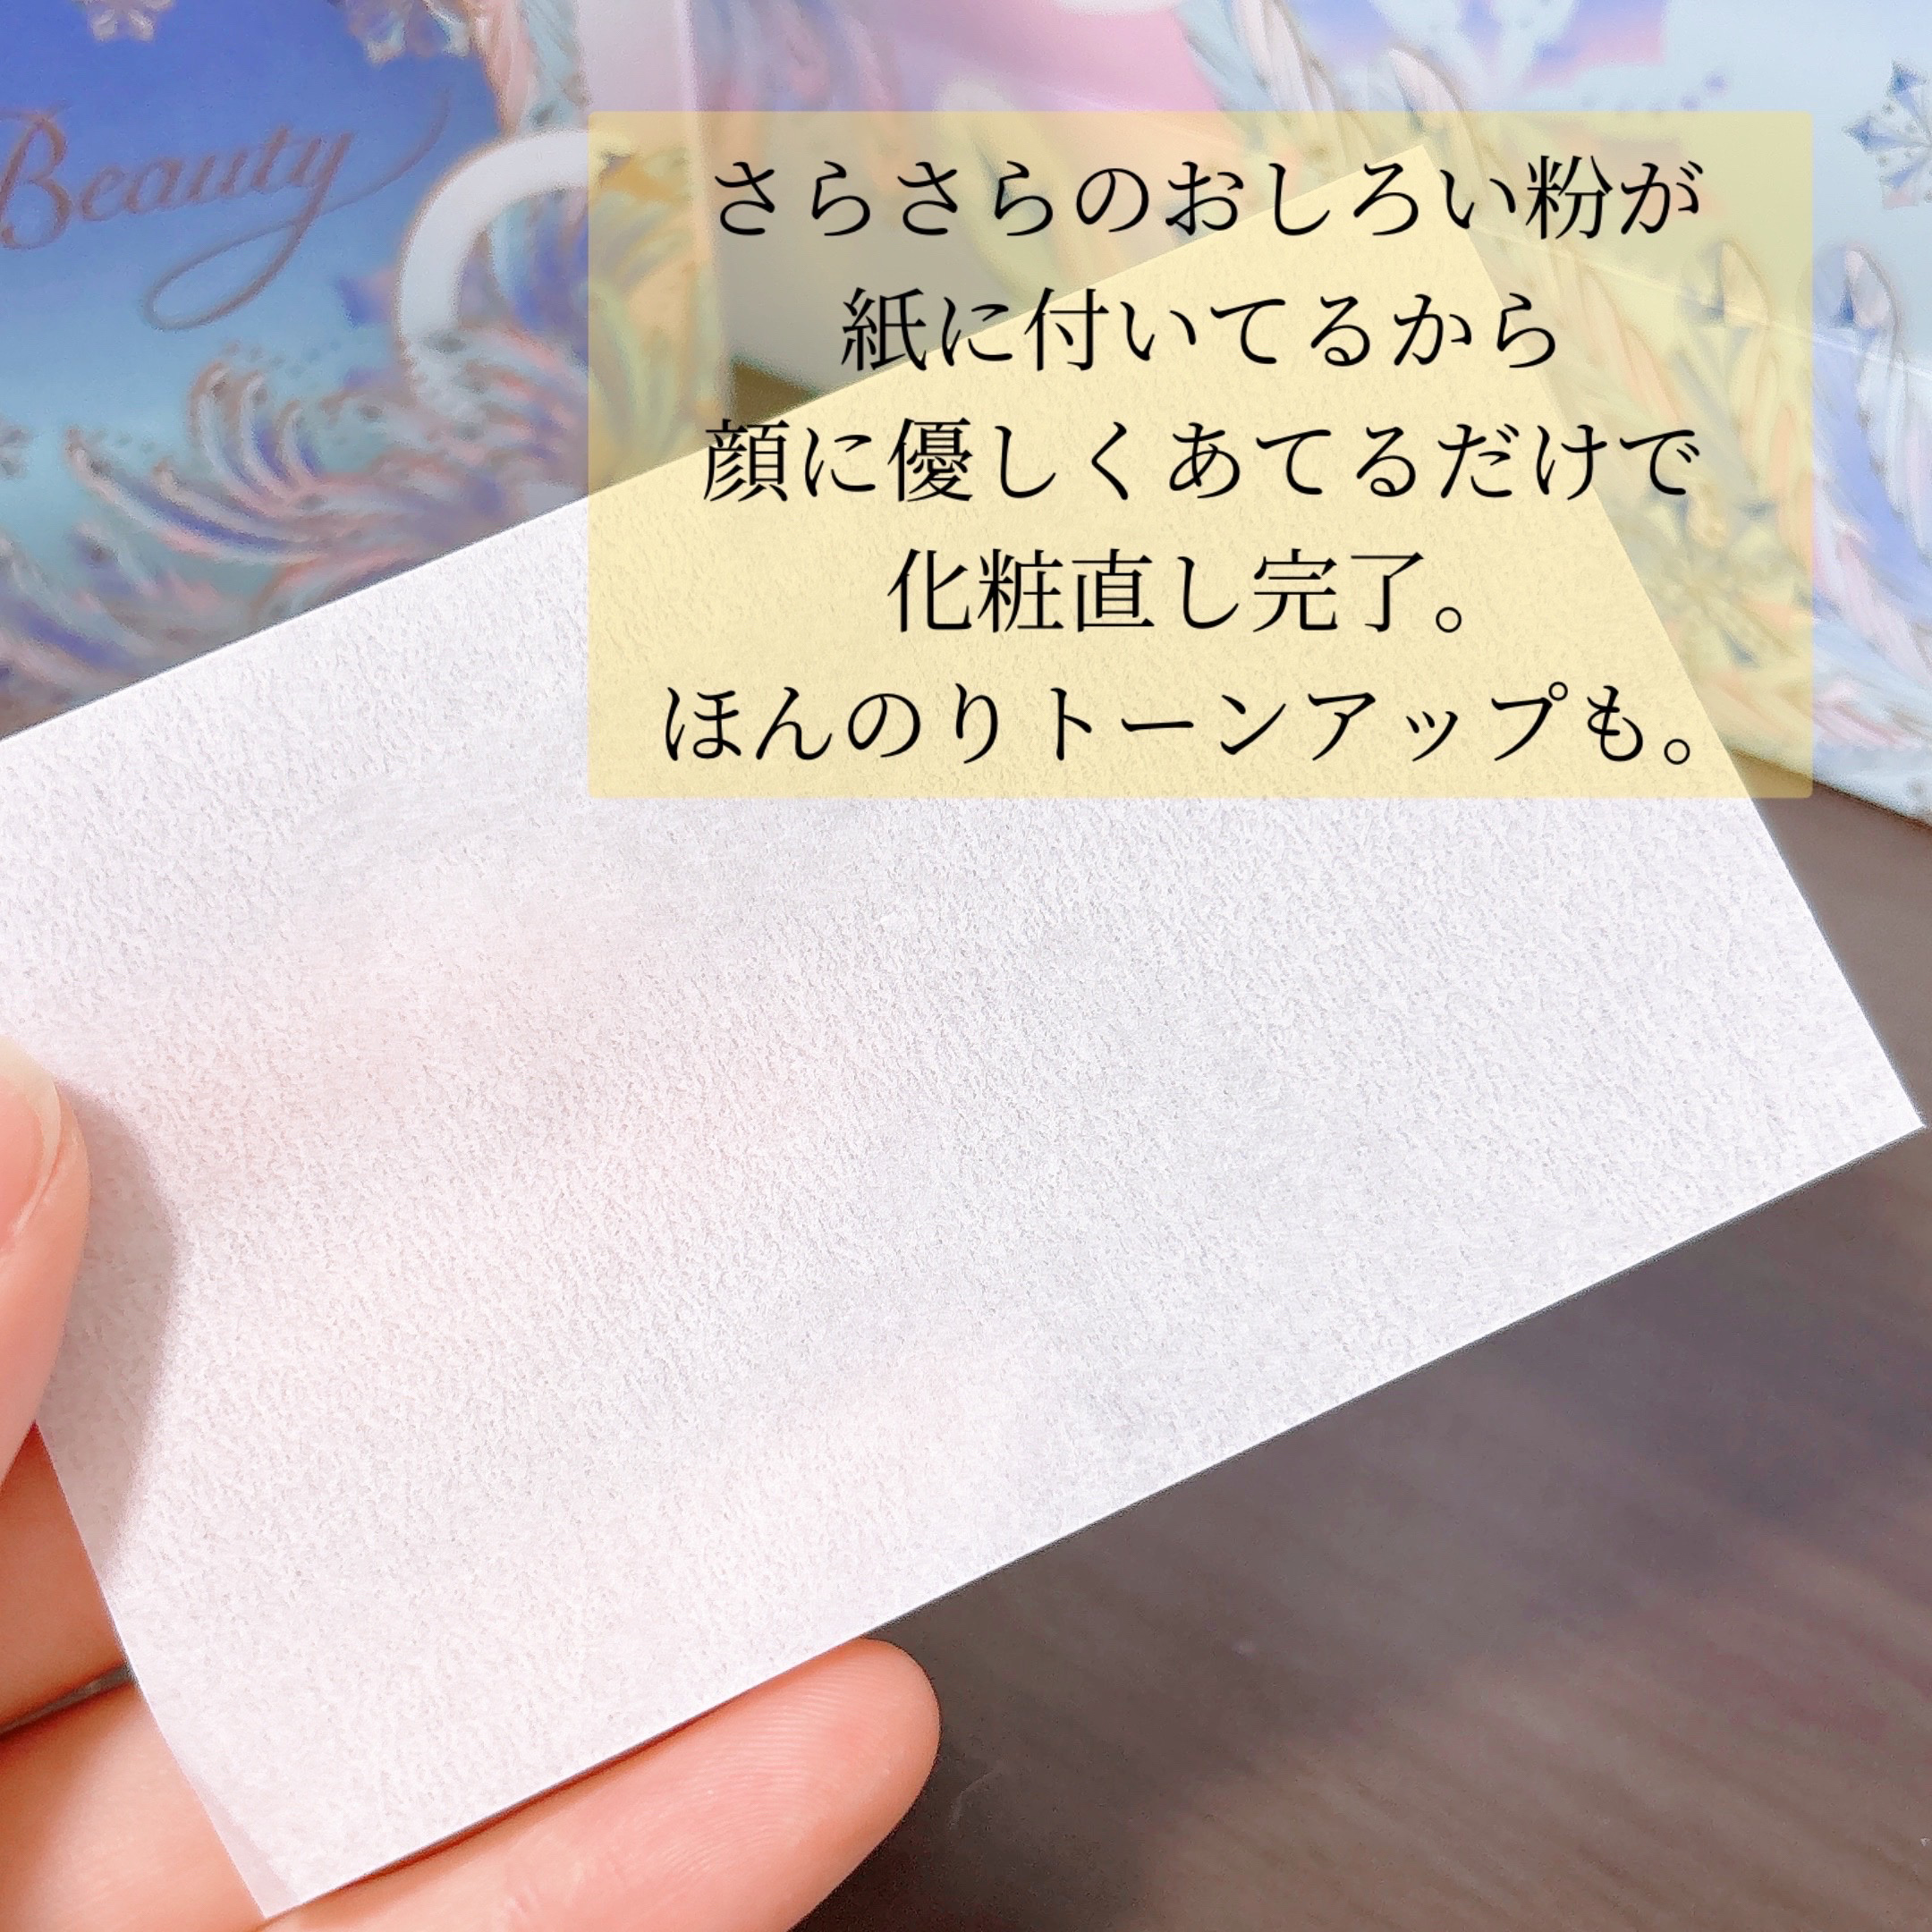 Beauty
さらさらのおしろい粉が
紙に付いてるから
顔に優しくあてるだけで
化粧直し完了。
ほんのりトーンアップも。